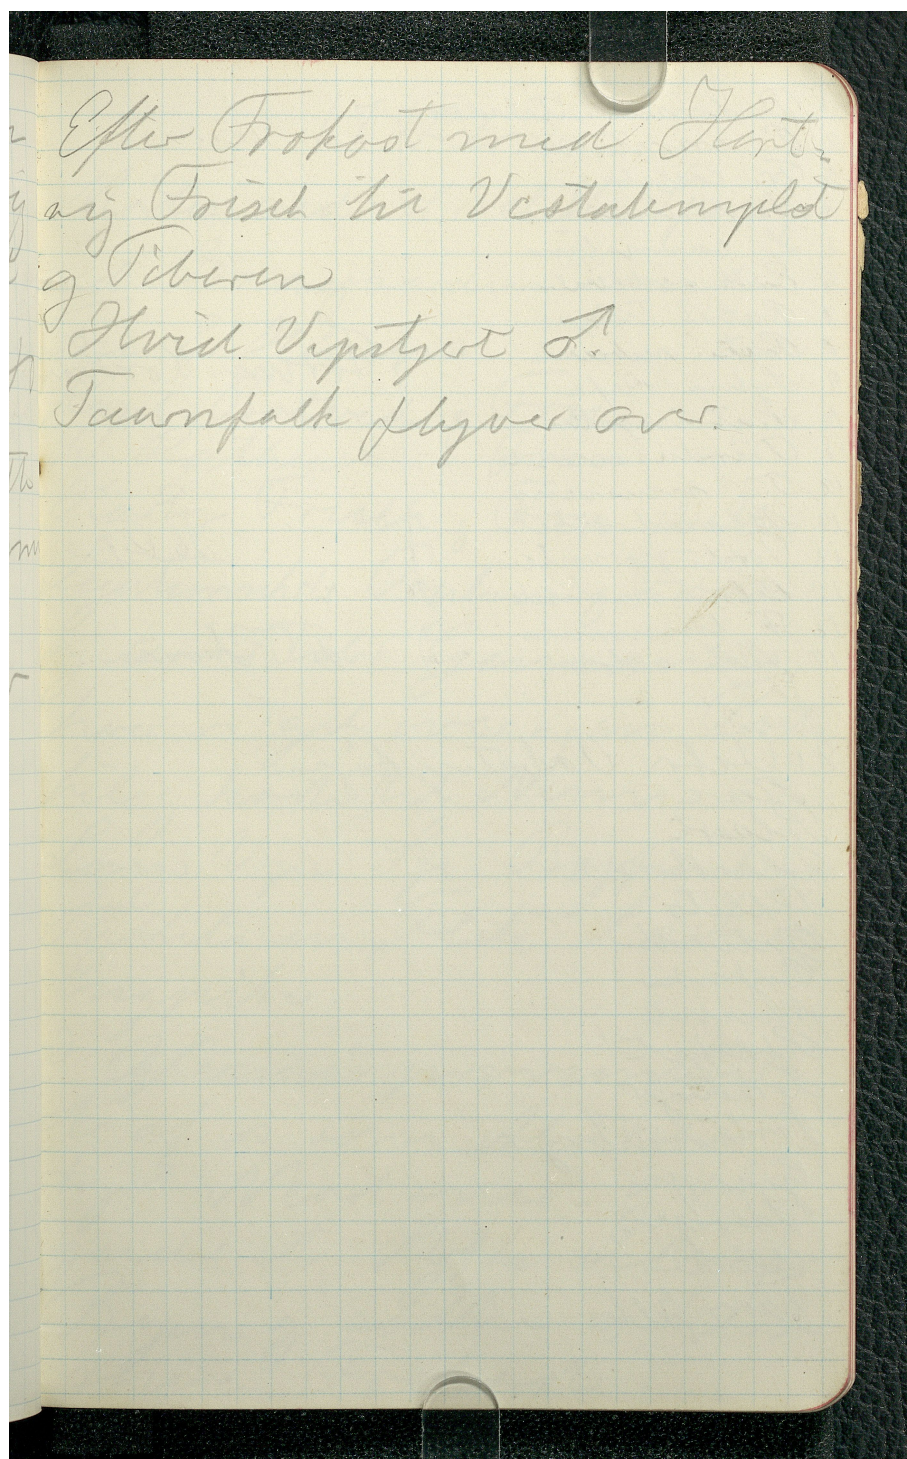 Efter Frokost med Hart-
vig Frisch til Vestatemplet
og Tiberen
Hvid Vipstjert ♂.
Taarnfalk flyver over.